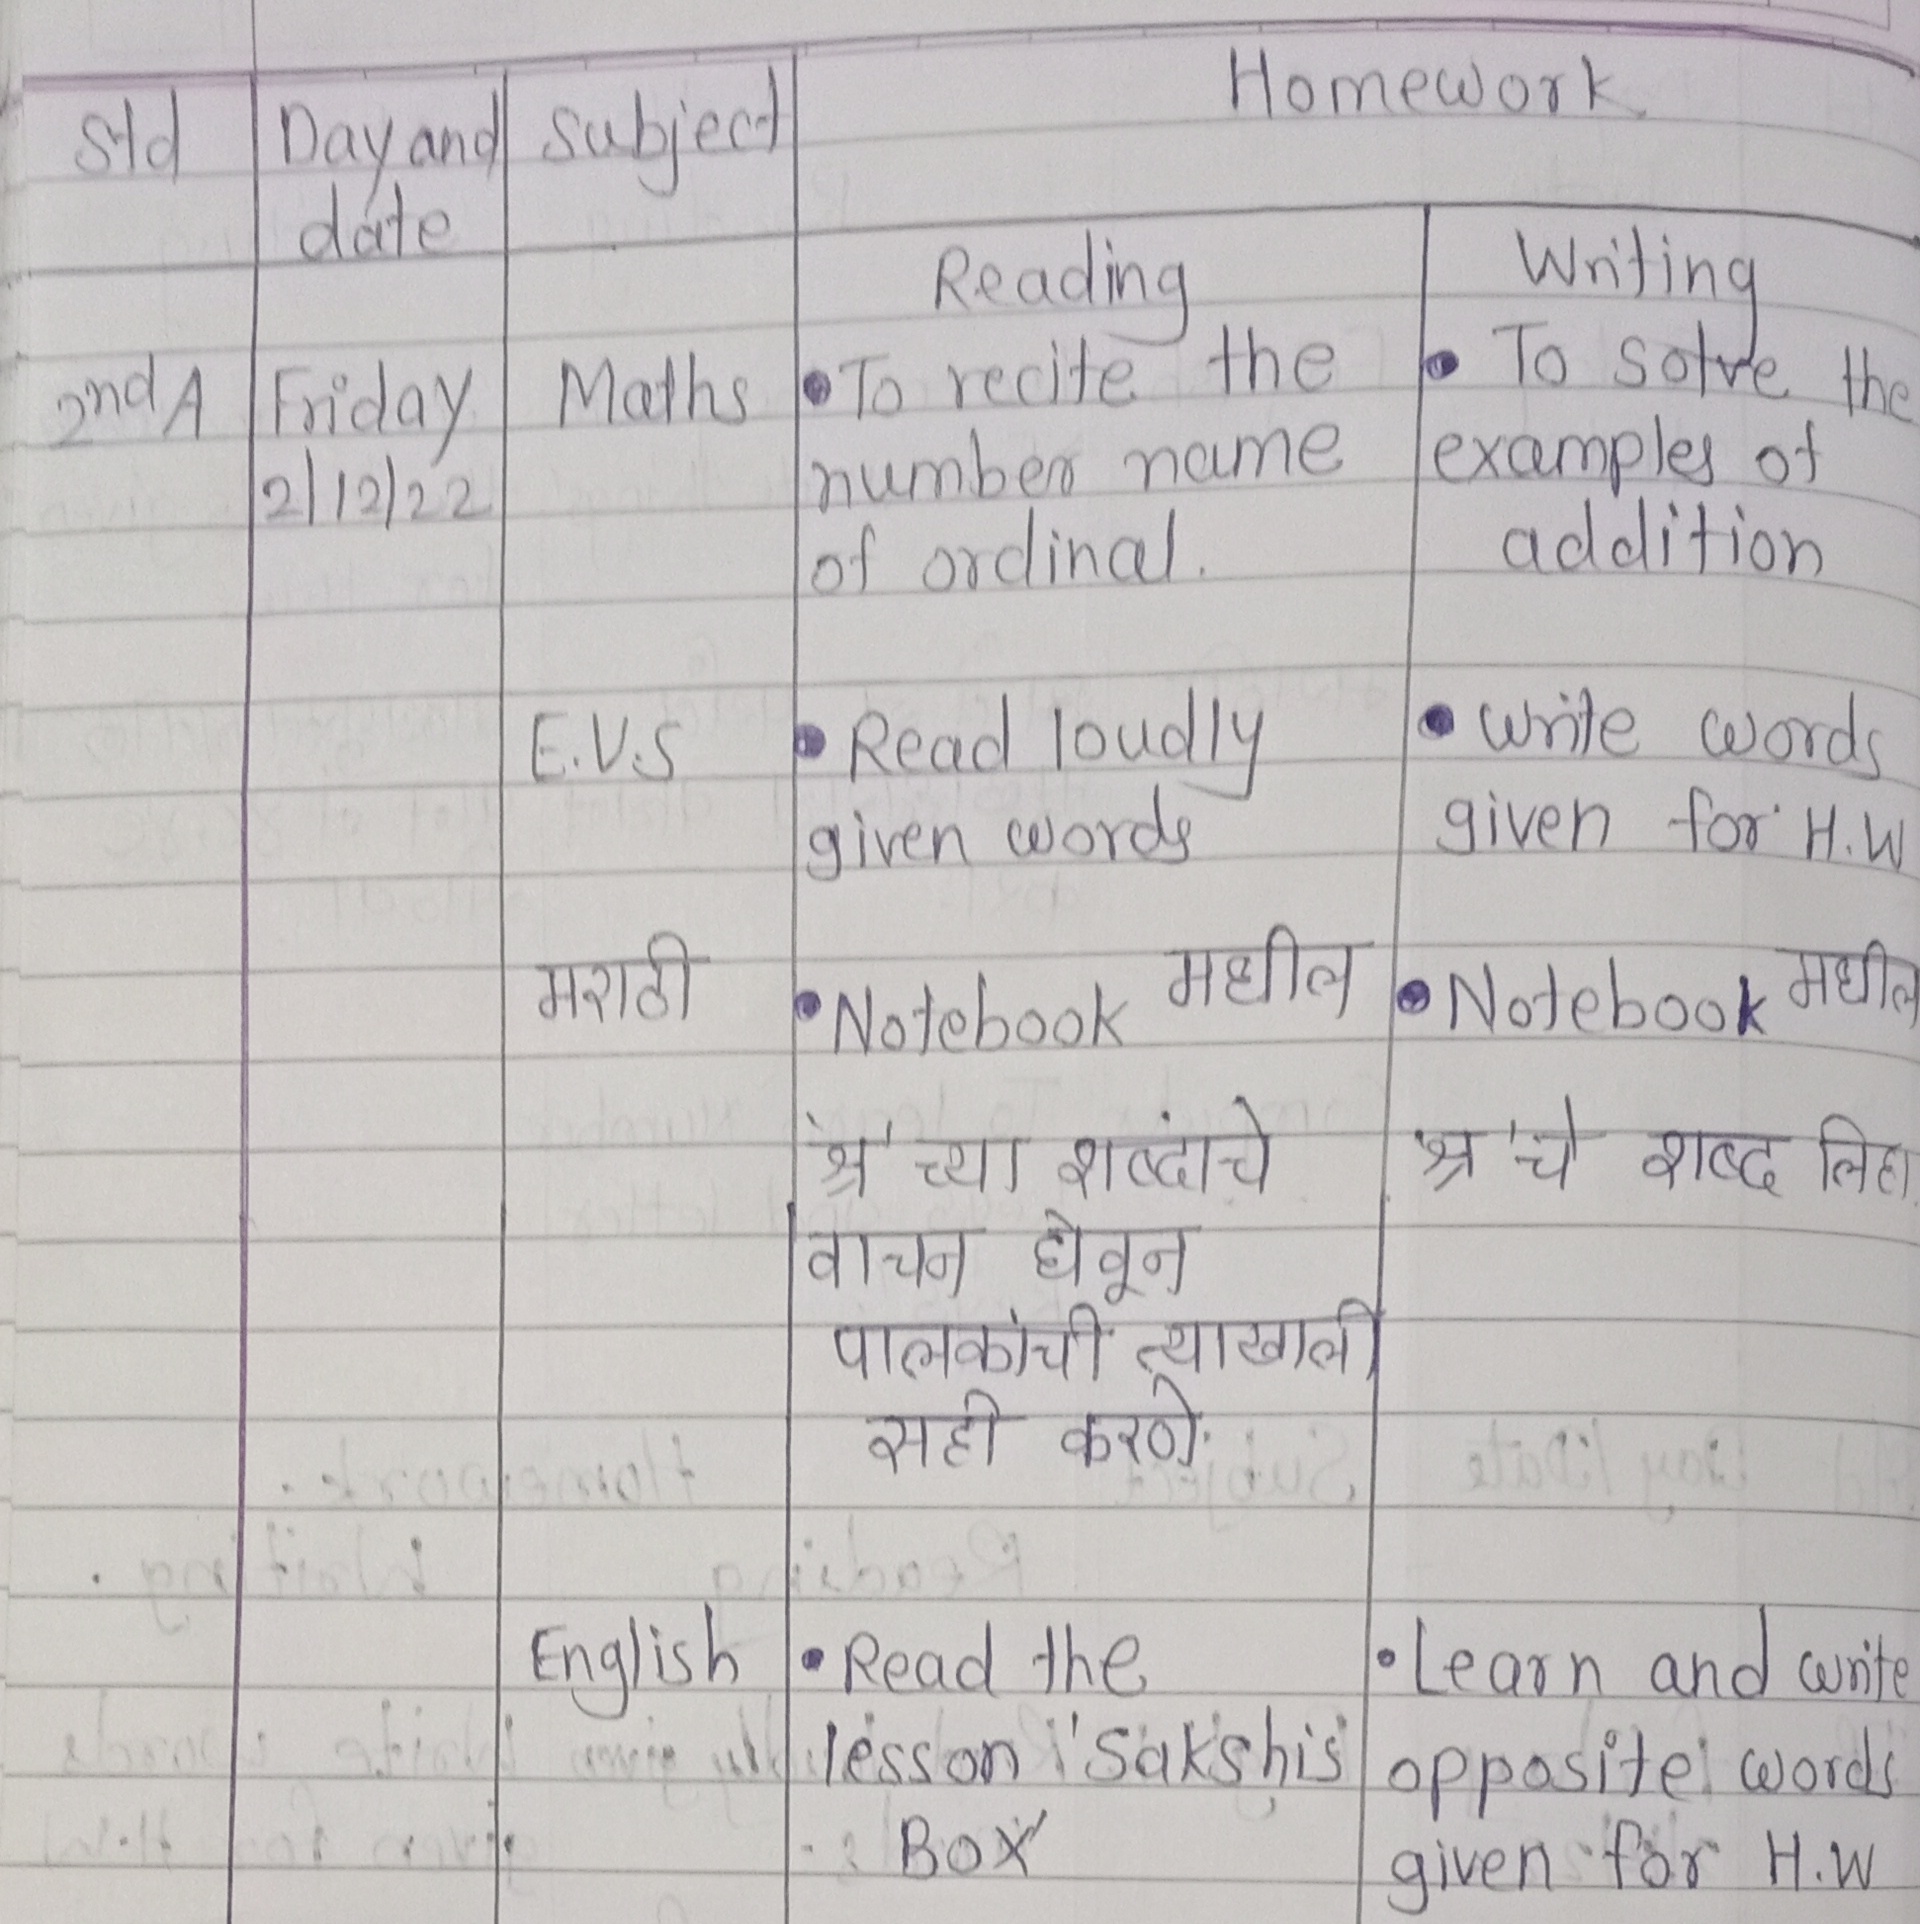 Std Day and Subject Homework
date
Reading Writing
2nd A Friday Maths • To recite the • To solve the
2/12/22 number name examples of
of ordinal. addition
E.V.S • Read loudly • Write words
given words given for H.W
मराठी • Notebook मधील • Notebook मधील
'श्र' च्या शब्दांचे 'श्र' चे शब्द लिहा.
वाचन घेवून
पालकांची त्याखाली
सही करणे.
English • Read the • Learn and write
lesson 'Sakshi's opposite words
Box' given for H.W